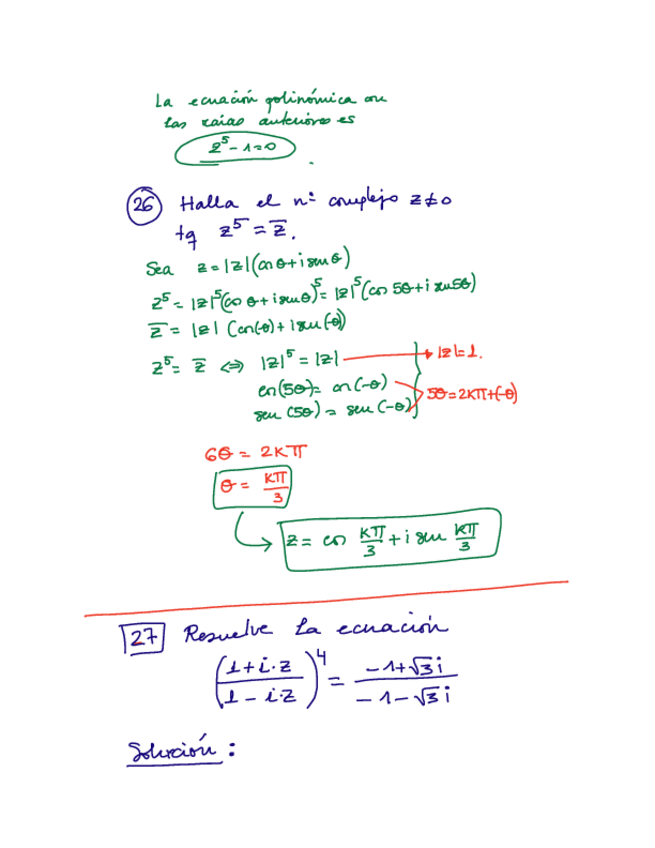 La ecuación polinómica con
las raíces anteriores es
z⁵ - 1 = 0
26 Halla el nº complejo z ≠ 0
tq z⁵ = z̅.
Sea z = |z|(cos θ + i sen θ)
z⁵ = |z|⁵(cos θ + i sen θ)⁵ = |z|⁵(cos 5θ + i sen 5θ)
z̅ = |z| (cos(-θ) + i sen(-θ))
z⁵ = z̅ ⇔ |z|⁵ = |z| → |z| = 1.
cos(5θ) = cos(-θ)
5θ = 2kπ + (-θ)
sen(5θ) = sen(-θ)
6θ = 2kπ
θ = kπ/3
z = cos kπ/3 + i sen kπ/3
27 Resuelve la ecuación
((1 + i·z)/(1 - i·z))⁴ = (-1 + √3 i)/(-1 - √3 i)
Solución: